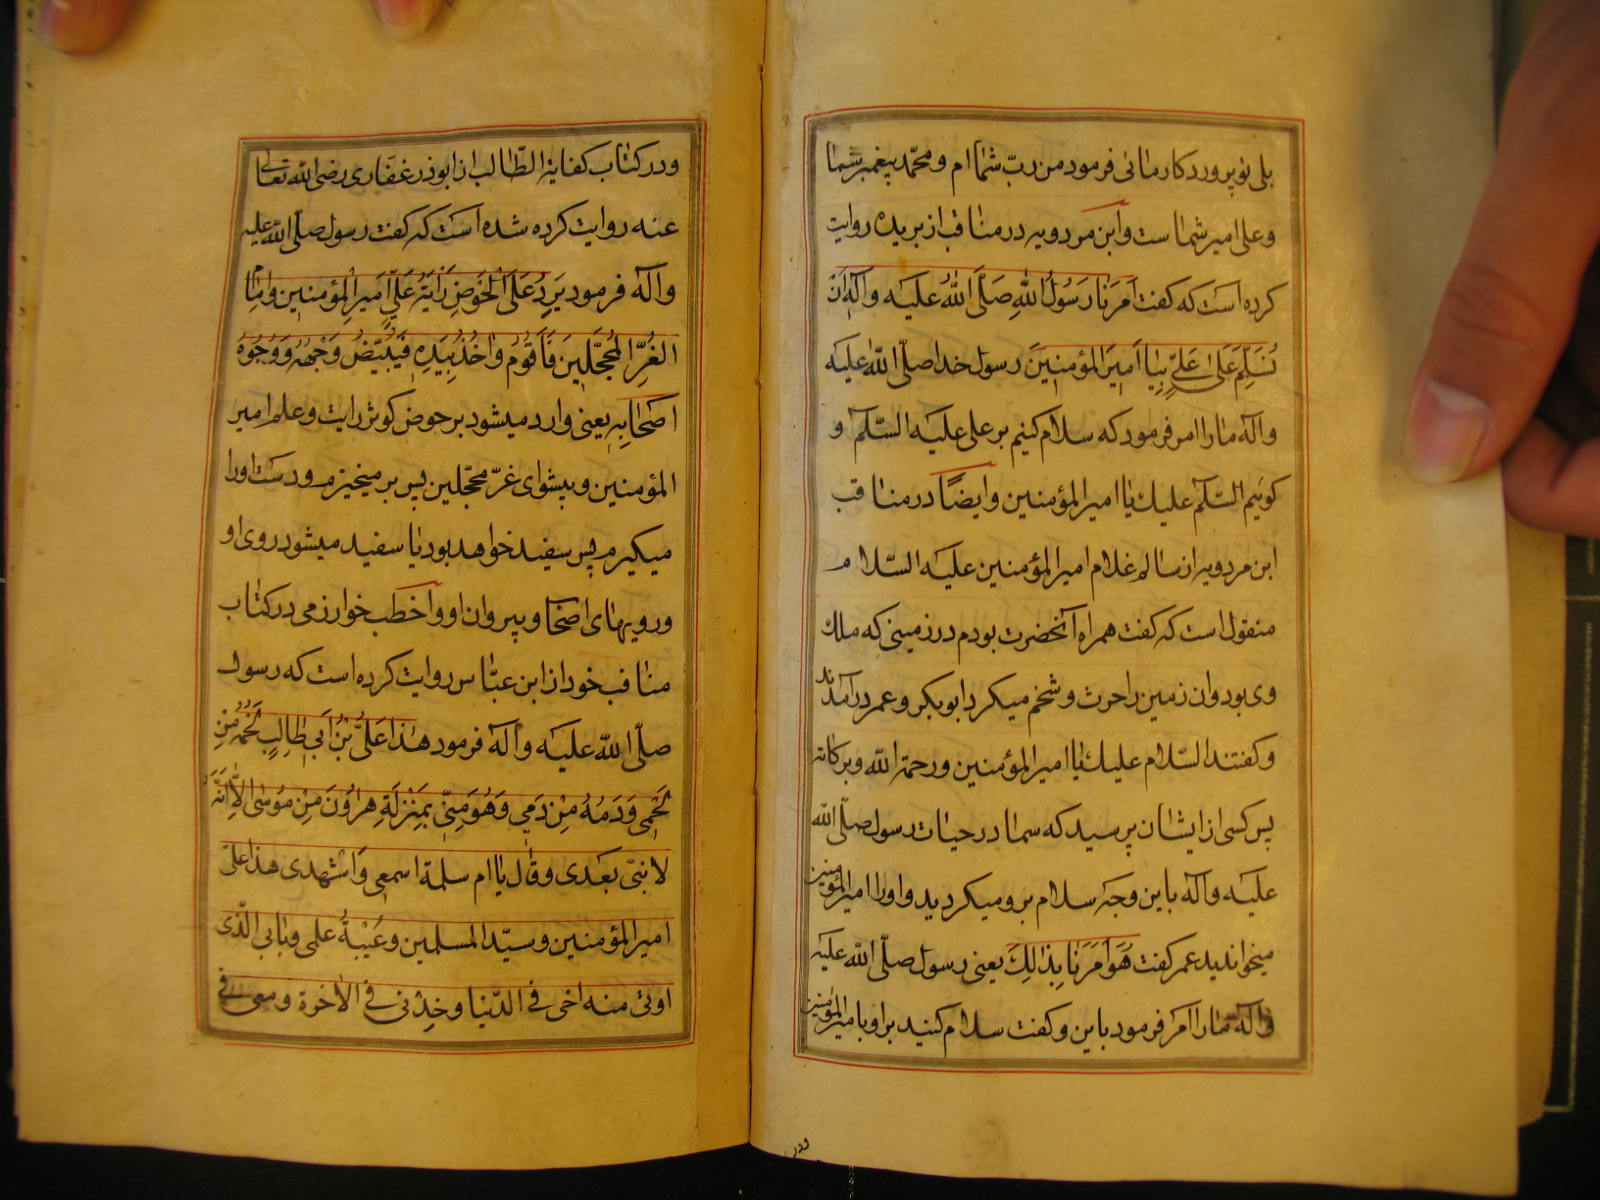 بلی تو پروردکار مائی فرمود من ربّ شما ام و محمّد پیغمبر شما
و علی امیر شما است و ابن مردویه در مناقب از بریده روایت
کرده است که کفت اَمَرَنا رَسُولُ اللهِ صَلَّی اللهُ علیه وآلِه اَنْ
نُسَلِّمَ عَلیٰ عَلیٍّ بِیا اَمیرَ المؤمنینَ رسول خدا صلّی اللّه علیه
وآله مارا امر فرمود که سلام کنیم بر علی علیه السّلم و
کوئیم السّلم علیك یا امیر المؤمنین و ایضاً در مناقب
ابن مردویه از سالم غلام امیر المؤمنین علیه السّلام
منقول است که کفت همراه آنحضرت بودم در زمینی که ملك
وی بود و ان زمین را حرث و شخم میکرد ابوبکر و عمر درآمدند
و کفتند السّلام علیك یا امیر المؤمنین و رحمة اللّه و برکاته
پس کسی از ایشان پرسید که شما در حیات رسول صلّی اللّه
علیه وآله باین وجه سلام برو میکردید و اورا امیر المؤمنین
میخواندید عمر کفت هُوَ اَمَرَنا بِذالِكَ یعنی رسول صلّی اللّه علیه
وآله مارا امر فرمود باین و کفت سلام کنید بر او بامیر المؤمنین
ودر
ودر کتاب کفایة الطّالب از ابوذر غفّاری رضی اللّه تعالی
عنه روایت کرده شده است که کفت رسول صلّی اللّه علیه
وآله فرمود یَرِدُ عَلَی الْحَوضِ رٰایَةُ عَلِیٍّ اَمیرِ المؤمنین وامٰامِ
الغُرِّ المُحَجَّلینَ فَاَقُومُ وٰاخُذُ بِیَدِهِ فَیُبَیَّضُ وَجْهُهُ وَوُجُوهُ
اصحٰابِهِ یعنی وارد میشود بر حوض کوثر رایت و علم امیر
المؤمنین و پیشوای غرّ محجّلین پس بر میخیزم و دست اورا
میکیرم پس سفید خواهد بود یا سفید میشود روی او
و رویهای اصحاب و پیروان او و اخطب خوارزمی در کتاب
مناقب خود از ابن عبّاس روایت کرده است که رسول
صلّی اللّه علیه وآله فرمود هٰذا عَلیُّ بْنُ اَبی طٰالِبٍ لَحْمُهُ مِنْ
لَحْمی وَدَمُهُ مِنْ دَمی وَهُوَ مِنّی بِمَنْزِلَةِ هٰرُونَ مِنْ مُوسٰی اِلّا اَنَّهُ
لا نبیّ بَعْدی و قٰال یا ام سلمة اسمعی وَاشْهدی هذا علیّ
امیر المؤمنین و سیّد المسلمین وعَیْبَةُ علمی وبابی الّذی
اوتی منه اخی فی الدّنیا وخِدْنی فی الاٰخرة ومعی فی